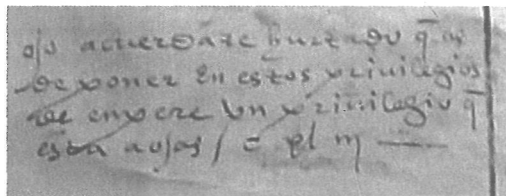 ojo acuerdate hurtado q̄ as
de poner en estos priuilegios
de enpere vn priuilegio q̄
esta a ojas / c pl m